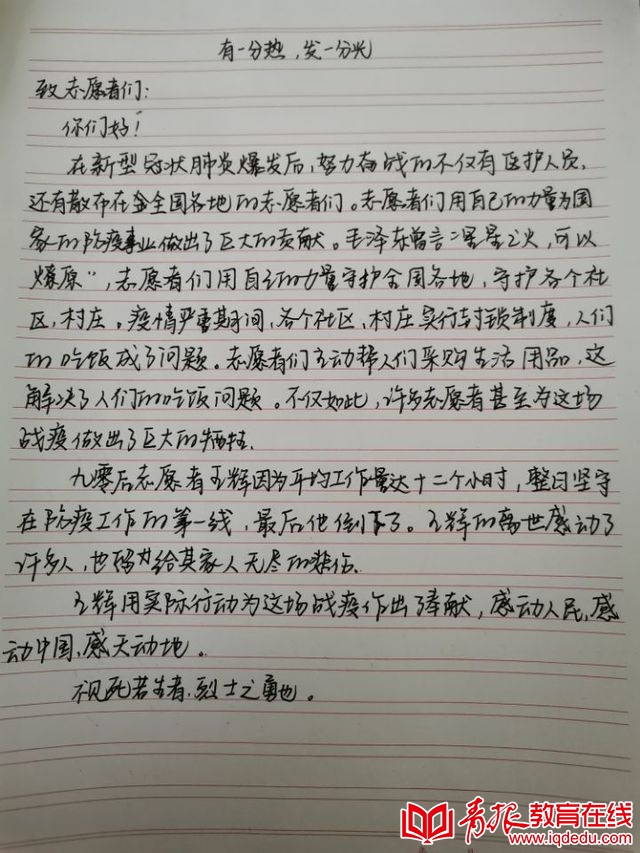 有一分热,发一分光
致志愿者们:
你们好!
在新型冠状肺炎爆发后,努力奋战的不仅有医护人员,
还有散布在全国各地的志愿者们。志愿者们用自己的力量为国
家的防疫事业做出了巨大的贡献。毛泽东曾言:“星星之火,可以
燎原”,志愿者们用自己的力量守护全国各地,守护各个社
区,村庄。疫情严重期间,各个社区,村庄实行封锁制度,人们
的吃饭成了问题。志愿者们主动帮人们采购生活用品,这
解决了人们的吃饭问题。不仅如此,许多志愿者甚至为这场
战疫做出了巨大的牺牲.
九零后志愿者王辉因为平均工作量达十二个小时,整日坚守
在防疫工作的第一线,最后他倒下了。王辉的离世感动了
许多人,也给其家人无尽的悲伤.
王辉用实际行动为这场战疫作出了奉献,感动人民,感
动中国,感天动地。
不视死若生者,烈士之勇也。
青报教育在线
www.iqdedu.com